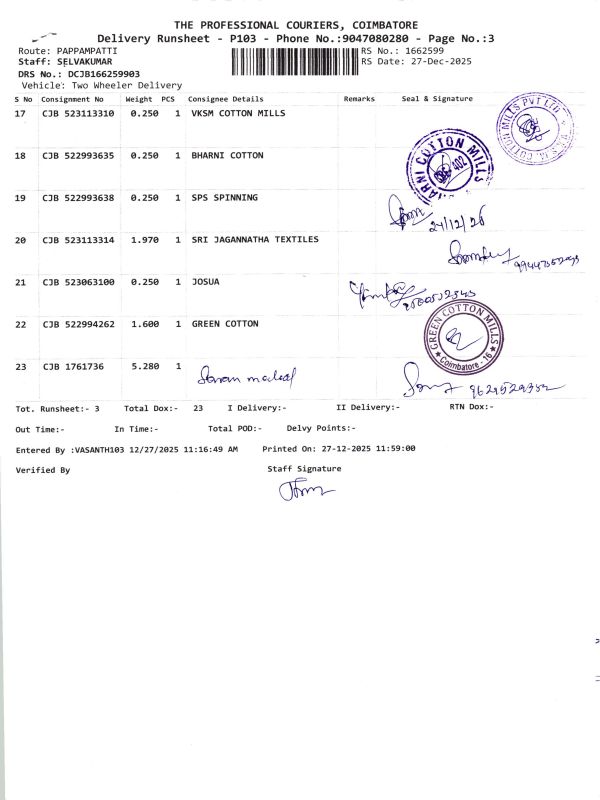 THE PROFESSIONAL COURIERS, COIMBATORE
Delivery Runsheet - P103 - Phone No.:9047080280 - Page No.:3
Route: PAPPAMPATTI
RS No.: 1662599
Staff: SELVAKUMAR
RS Date: 27-Dec-2025
DRS No.: DCJB166259903
Vehicle: Two Wheeler Delivery
S No Consignment No Weight PCS Consignee Details Remarks Seal & Signature
17 CJB 523113310 0.250 1 VKSM COTTON MILLS
COTTON MILLS PVT LTD
18 CJB 522993635 0.250 1 BHARNI COTTON
COTTON MILLS
402
19 CJB 522993638 0.250 1 SPS SPINNING
20 CJB 523113314 1.970 1 SRI JAGANNATHA TEXTILES
21 CJB 523063100 0.250 1 JOSUA
22 CJB 522994262 1.600 1 GREEN COTTON
GREEN COTTON MILLS
Coimbatore - 16
23 CJB 1761736 5.280 1
Tot. Runsheet:- 3 Total Dox:- 23 I Delivery:- II Delivery:- RTN Dox:-
Out Time:- In Time:- Total POD:- Delvy Points:-
Entered By :VASANTH103 12/27/2025 11:16:49 AM Printed On: 27-12-2025 11:59:00
Verified By Staff Signature